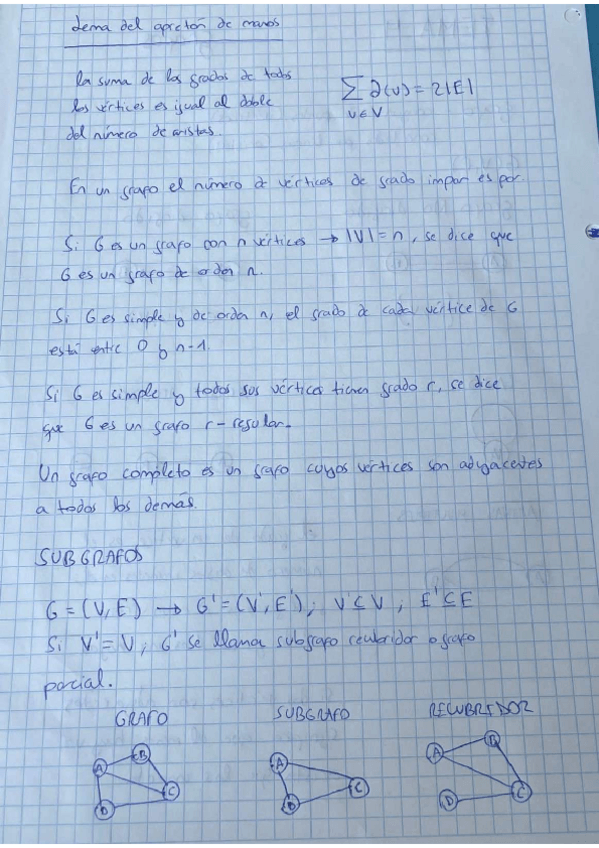 Lema del apretón de manos
la suma de los grados de todos
los vértices es igual al doble
del número de aristas
∑ ∂(v) = 2|E|
v∈V
En un grafo el número de vértices de grado impar es par.
Si G es un grafo con n vértices → |V| = n, se dice que
G es un grafo de orden n.
Si G es simple y de orden n, el grado de cada vértice de G
está entre 0 y n-1.
Si G es simple y todos sus vértices tienen grado r, se dice
que G es un grafo r-regular.
Un grafo completo es un grafo cuyos vértices son adyacentes
a todos los demás.
SUBGRAFOS
G = (V, E) → G' = (V', E'); V' ⊆ V ; E' ⊆ E
Si V' = V, G' se llama subgrafo recubridor o grafo
parcial.
GRAFO SUBGRAFO RECUBRIDOR
A B C D
A D C
A B C D